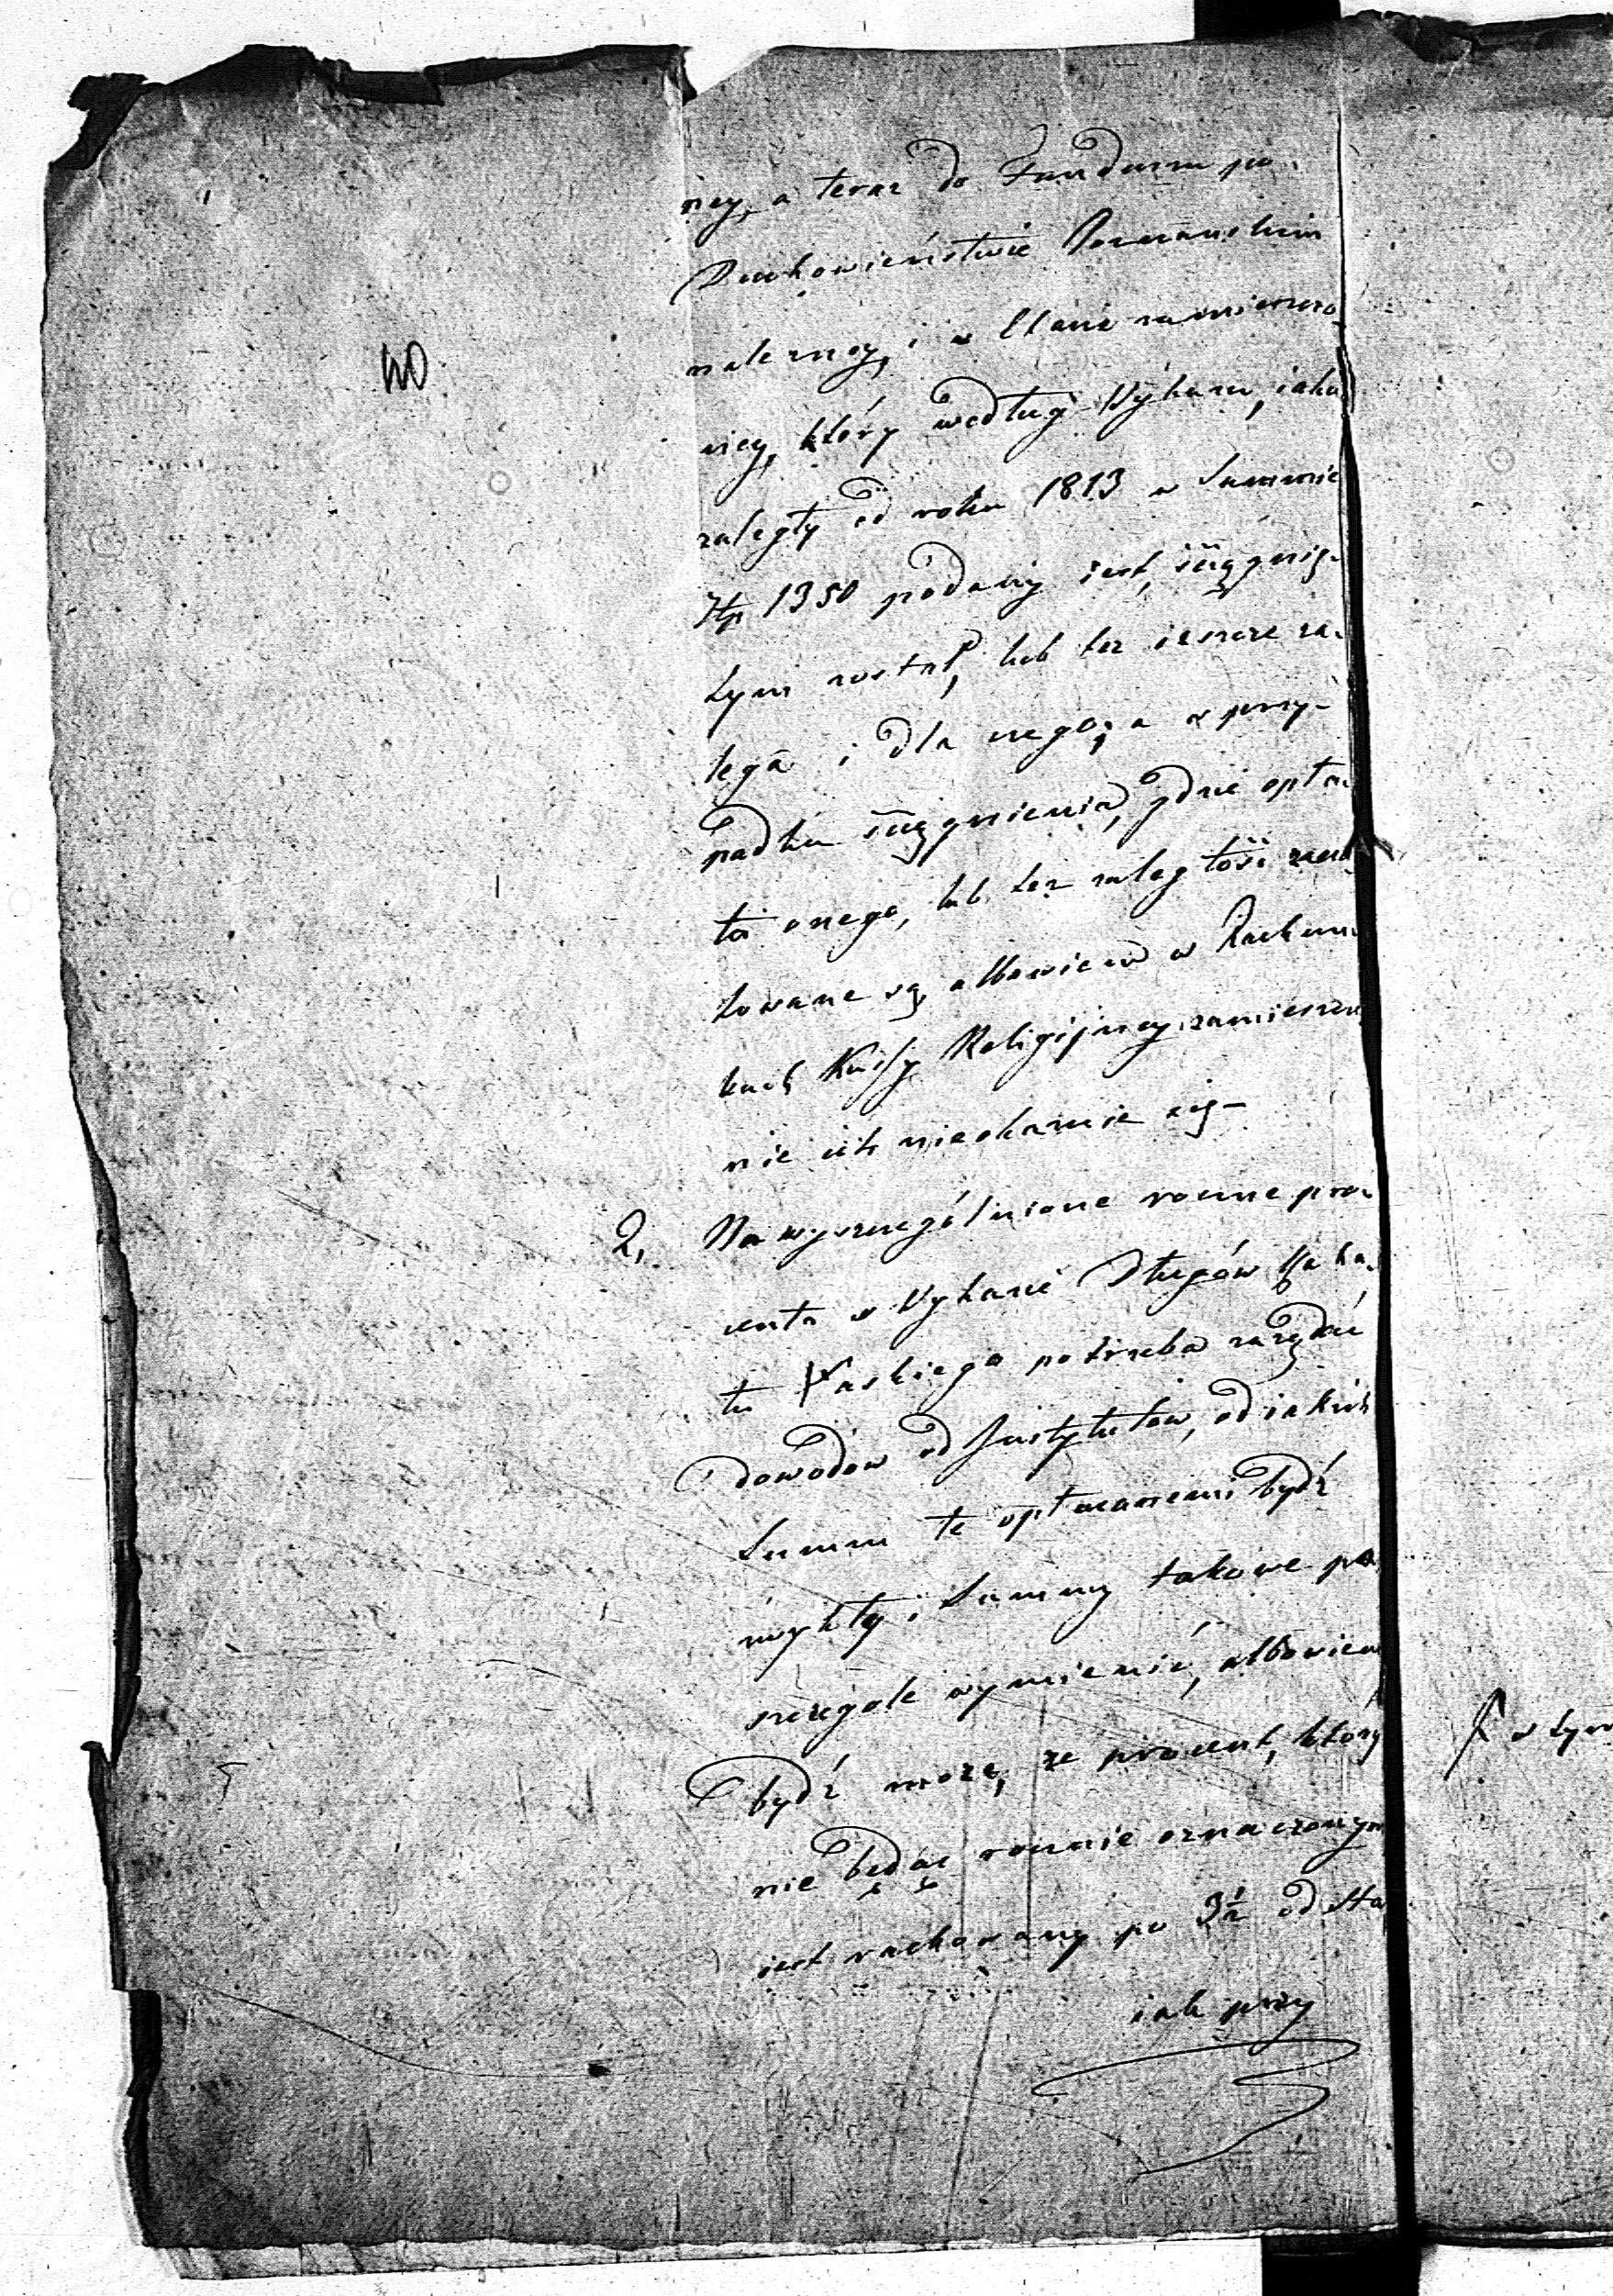 40
ney, a teraz do Funduszu po
Duchowieństwie Poznańskim
należney, i w Etacie zamieszczo-
ney, który według Wykazu, iako
zaległy od roku 1813 w Summie
Złp 1350 podany iest, ściągnię-
tym został, lub też ieszcze za-
lega i dla czego, a w przy-
padku ściągnienia, gdzie opła-
ta onego, lub też zaległość
towane są, albowiem w Rachun-
kach Kassy Religijney zamieszczo-
nie ich nieokazuie się-
2, Na wyszczególnione roczne pro-
centa w Wykazie Długów
tu potrzeba zażądać
dowodów od Instytutów, od iakich
Summ te opłacanemi bydź
zwykły i Summy takowe po
szczegole wymienić, albowiem
bydź może, że procent, który
nie będąc rocznie oznaczonym
iest rachowany po 3½ od Sta
iak przy
w tym